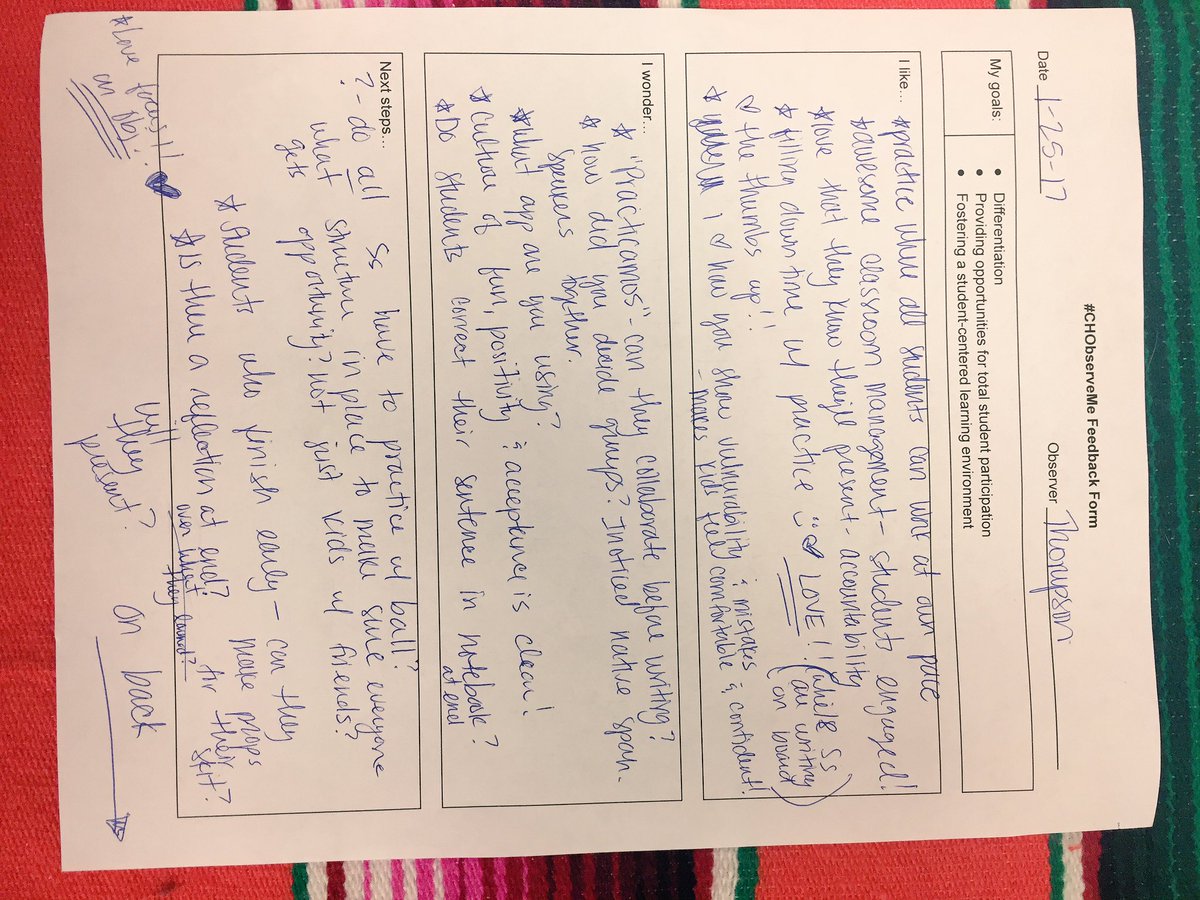 #CHObserveMe Feedback Form
Date 1-25-17 Observer Thompson
My goals:
• Differentiation
• Providing opportunities for total student participation
• Fostering a student-centered learning environment
I like...
*practice where all students can work at own pace
*awesome classroom management - student engaged!
*love that they know they're present - accountability
*filling down time w/ practice ☺♥ LOVE!! (while Ss
are writing
on board)
♡ the thumbs up!!
* i ♡ how you show vulnurability & mistakes
- makes kids feel comfortable & confident!
I wonder...
* "Practicamos" - can they collaborate before writing?
* how did you decide groups? I noticed native span.
speakers together.
*what app are you using?
*Culture of fun, positivity & acceptance is clear!
*Do students correct their sentence in notebook?
at end
Next steps...
? - do all Ss have to practice w/ ball?
what structure in place to make sure everyone
gets opportunity? not just kids w/ friends?
*students who finish early - can they
make props
for their
skit?
*Is there a reflection at end?
over what
they learned?
will
they
present?
*Love focus!!
on obj! ♥
on back →